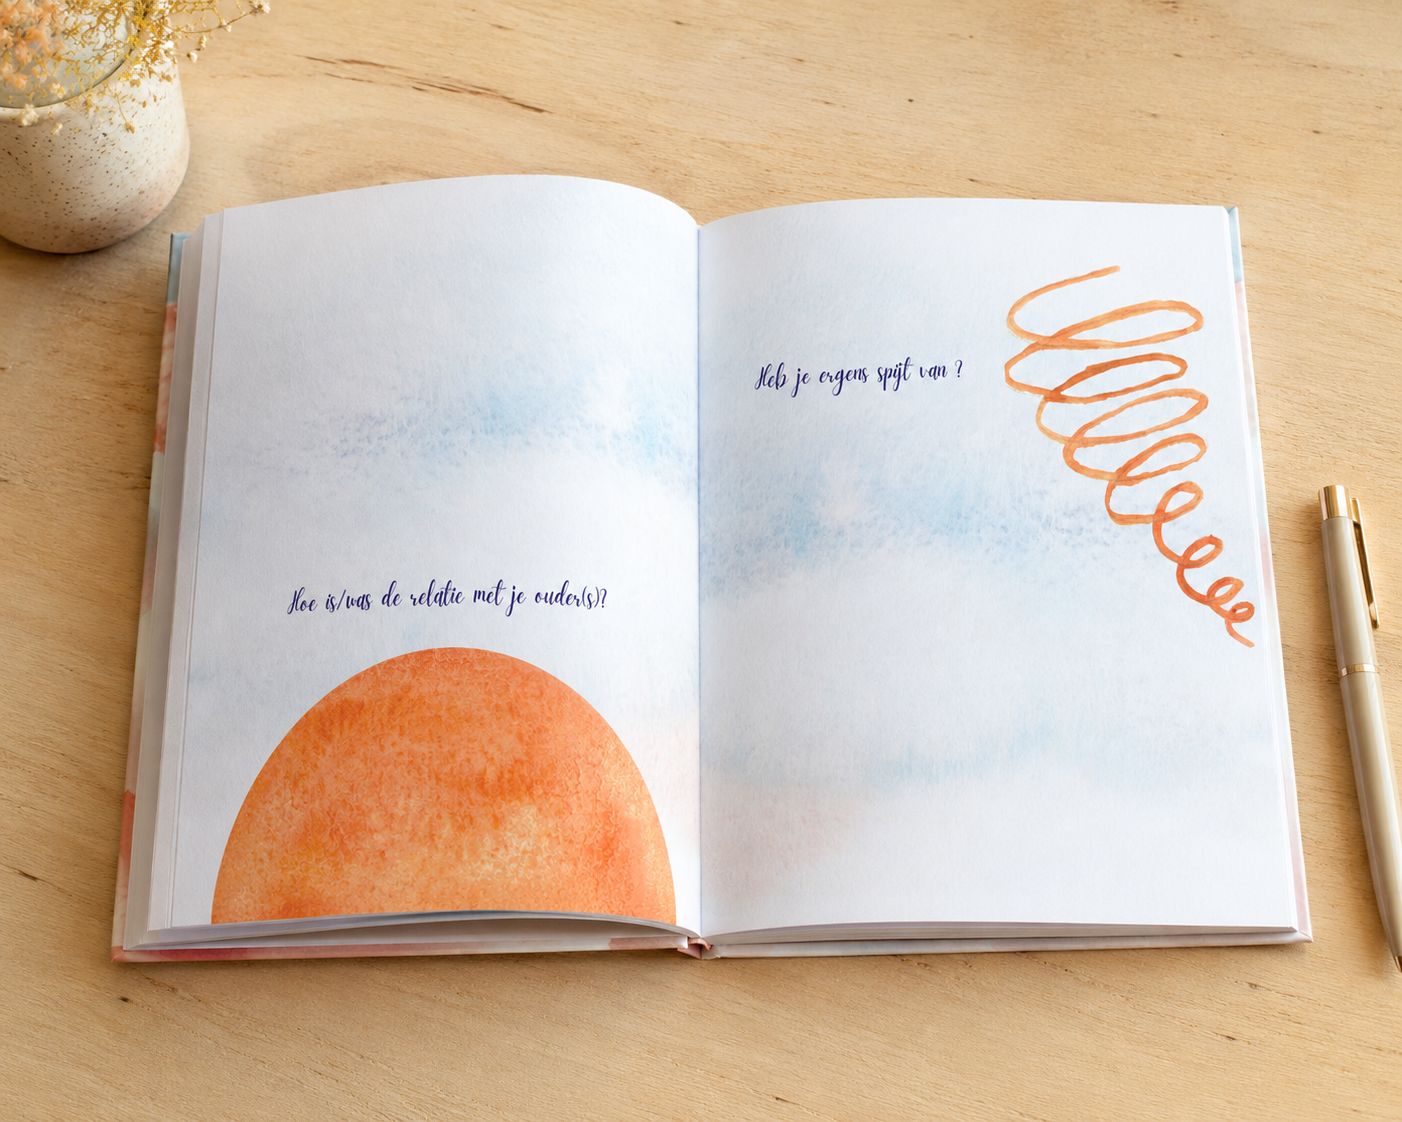 Hoe is/was de relatie met je ouder(s)?
Heb je ergens spijt van ?